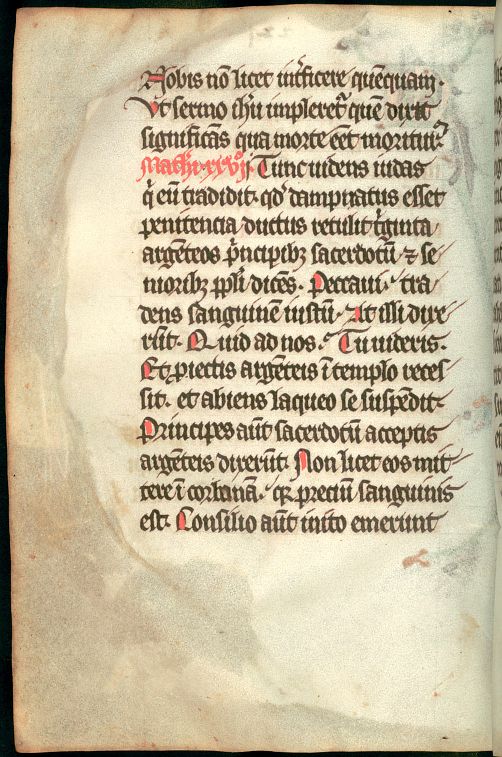 Nobis nō licet int̄ficere quēquam.
Vt sermo ih̄u impleret᷑ quē dixit
significās qua morte eēt moritur᷑.
Mathi · xxvij Tunc uidens iudas
q̇ eū tradidit · qd̛ dampnatus esset
penitencia ductus retulit t̓ginta
argēteos p̓ncipibꝫ sacerdotū ⁊ se
nioribꝫ pp̄li dicēs · Peccaui · tra
dens sanguinē iustū · At illi dixe
rūt · Quid ad nos · Tu uideris ·
Et ꝓiectis argēteis ī templo reces
sit · et abiens laqueo se suspēdit ·
Principes aūt sacerdotū acceptis
argēteis dixerūt · Non licet eos mit
tere ī corbanā · qꝛ preciū sanguinis
est · Consilio aūt inito emerunt